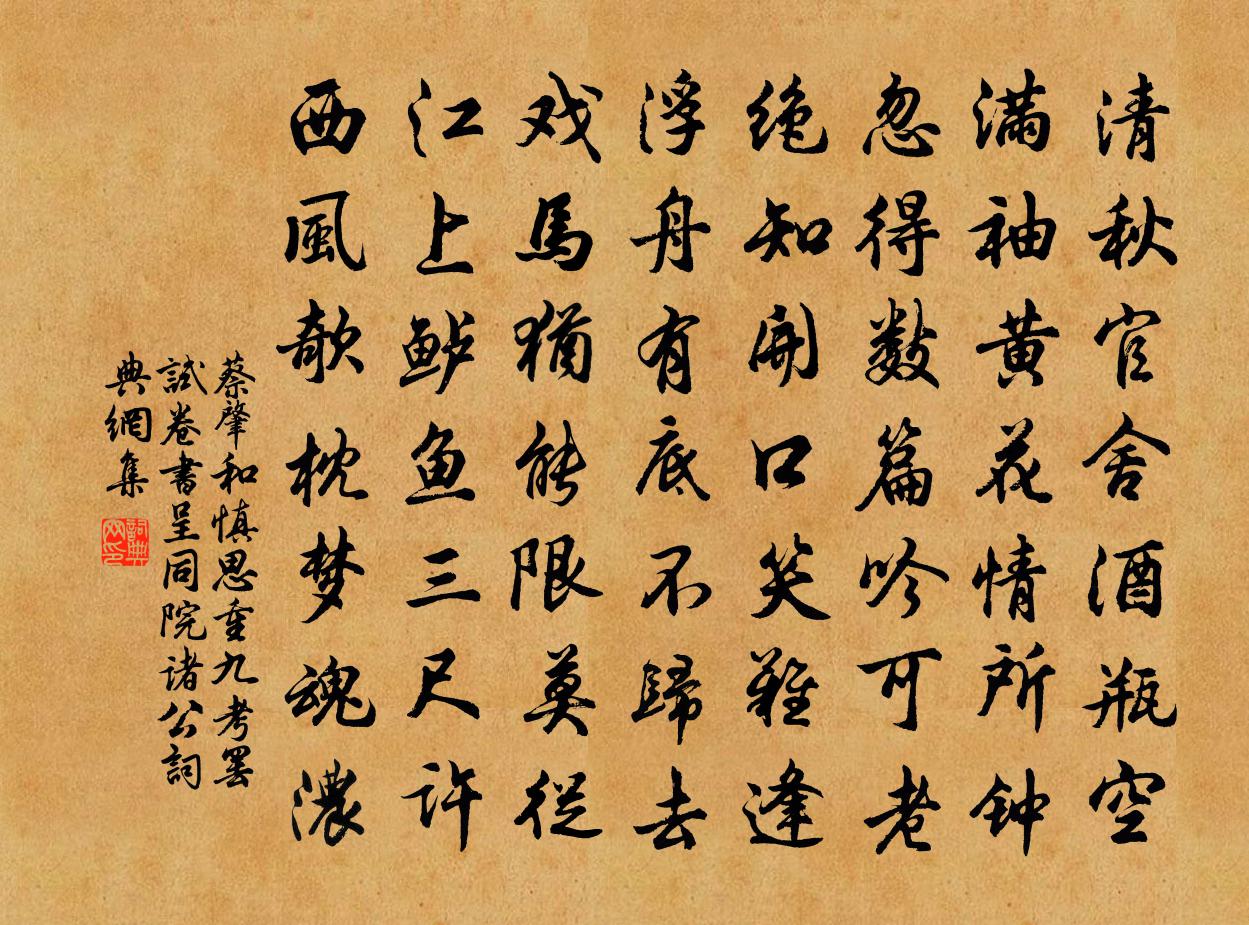 清秋官舍酒瓶空
满袖黄花情所钟
忽得数篇吟可老
绝知開口笑难逢
浮舟有底不歸去
戏馬猶能限莫從
江上鲈鱼三尺许
西風欹枕梦魂濃
蔡肇和慎思重九考罢
試卷書呈同院诸公詞
典網集
詞典网印